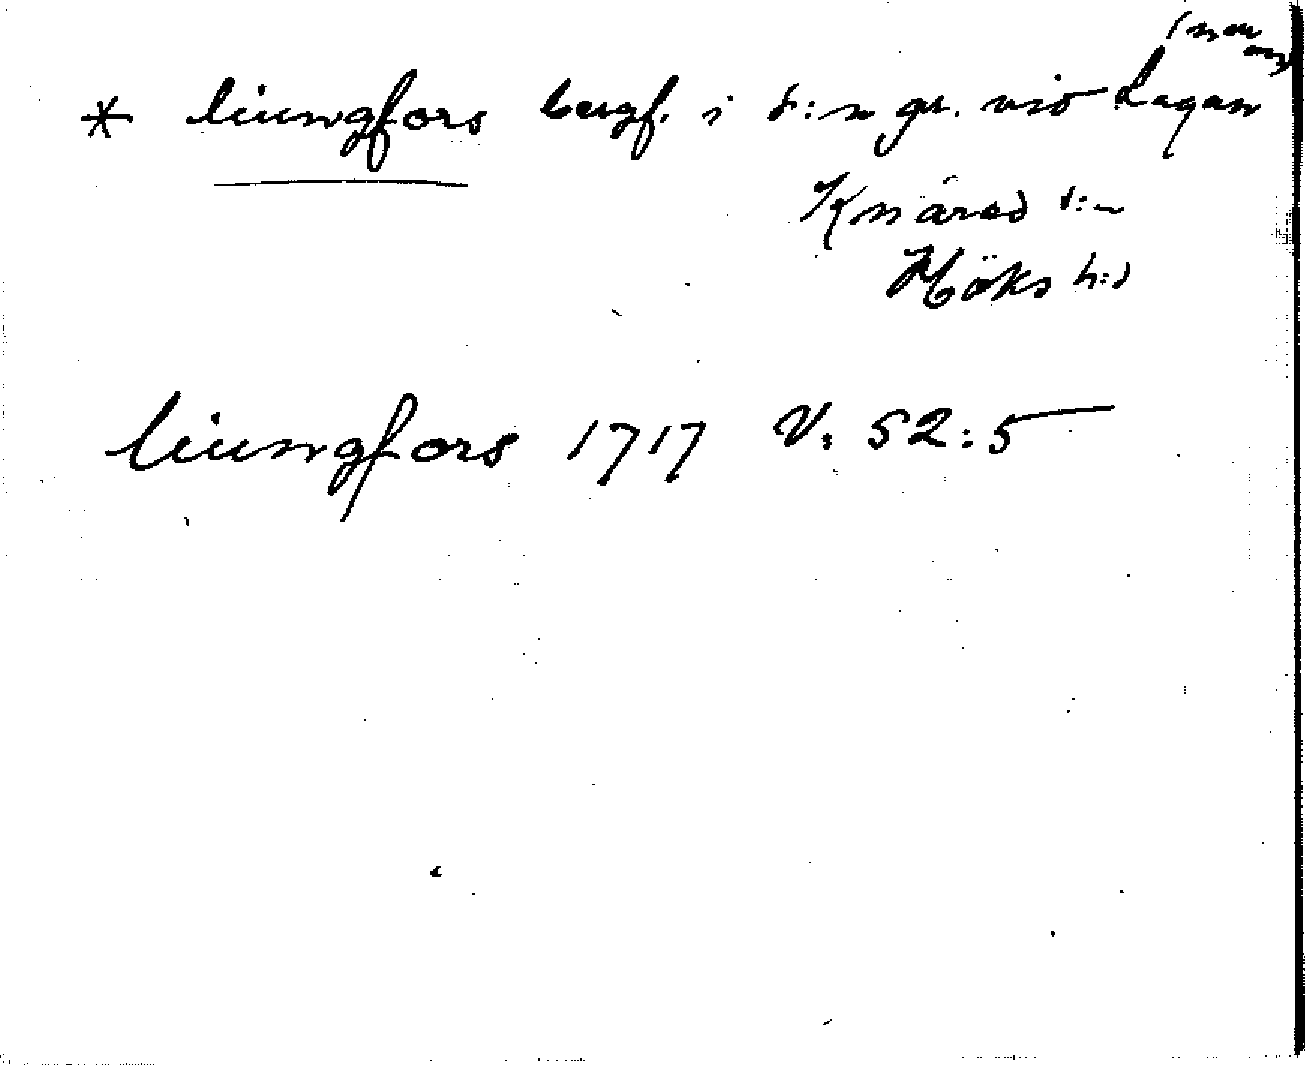 * liungfors bergf. i s:n gr. vid Lagan
Knäred s:n
Höks h:d
liungfors 1717 V: 52:5